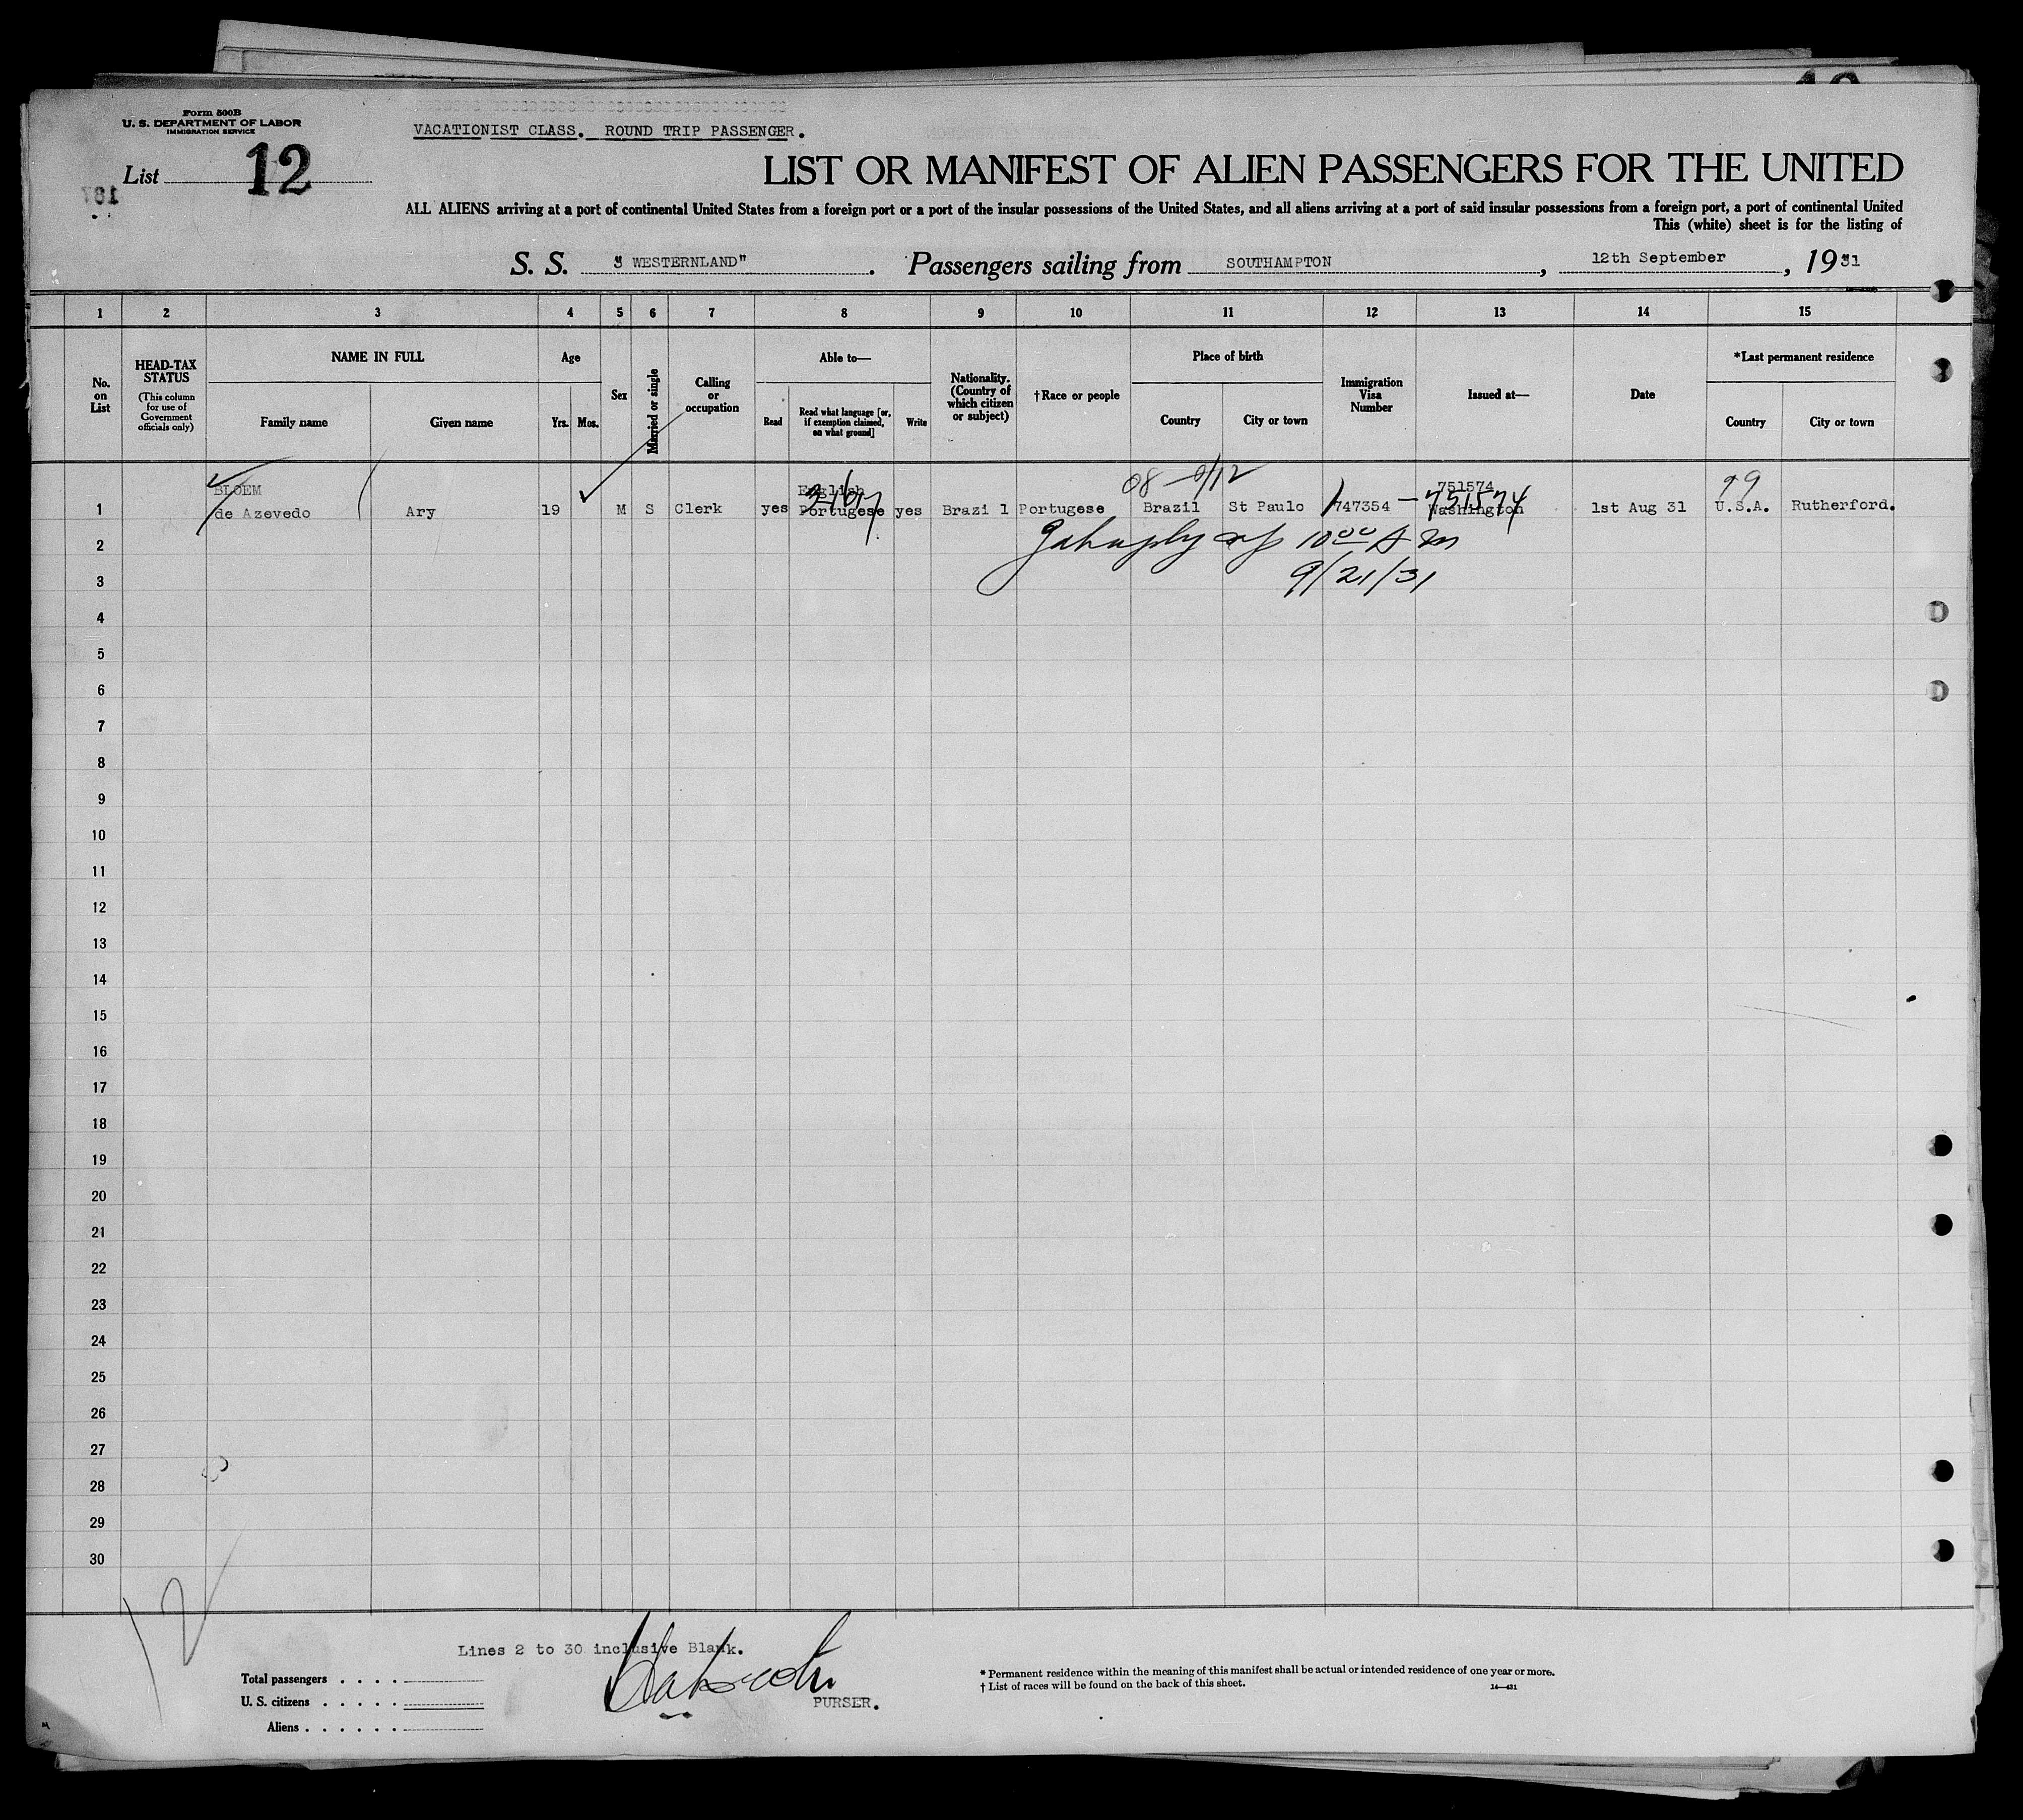 Form 500B
U. S. DEPARTMENT OF LABOR
IMMIGRATION SERVICE
VACATIONIST CLASS. ROUND TRIP PASSENGER.
List 12
187
LIST OR MANIFEST OF ALIEN PASSENGERS FOR THE UNITED
ALL ALIENS arriving at a port of continental United States from a foreign port or a port of the insular possessions of the United States, and all aliens arriving at a port of said insular possessions from a foreign port, a port of continental United
This (white) sheet is for the listing of
S. S. "WESTERNLAND". Passengers sailing from SOUTHAMPTON, 12th September, 1931
1 2 3 4 5 6 7 8 9 10 11 12 13 14 15
No. on List
HEAD-TAX STATUS
(This column for use of Government officials only)
NAME IN FULL
Family name Given name
Age
Yrs. Mos.
Sex
Married or single
Calling or occupation
Able to—
Read
Read what language [or, if exemption claimed, on what ground]
Write
Nationality. (Country of which citizen or subject)
†Race or people
Place of birth
Country City or town
Immigration Visa Number
Issued at—
Date
*Last permanent residence
Country City or town
BLOEM English 08 751574 99
1 de Azevedo Ary 19 M S Clerk yes Portugese yes Brazi l Portugese Brazil St Paulo 747354 — 751574 Washington 1st Aug 31 U.S.A. Rutherford.
2 10 00 A M
3 9/21/31
4
5
6
7
8
9
10
11
12
13
14
15
16
17
18
19
20
21
22
23
24
25
26
27
28
29
30
12
Lines 2 to 30 inclusive Blank.
Total passengers . . . .
U. S. citizens . . . . .
Aliens . . . . . .
PURSER.
* Permanent residence within the meaning of this manifest shall be actual or intended residence of one year or more.
† List of races will be found on the back of this sheet.
14—431